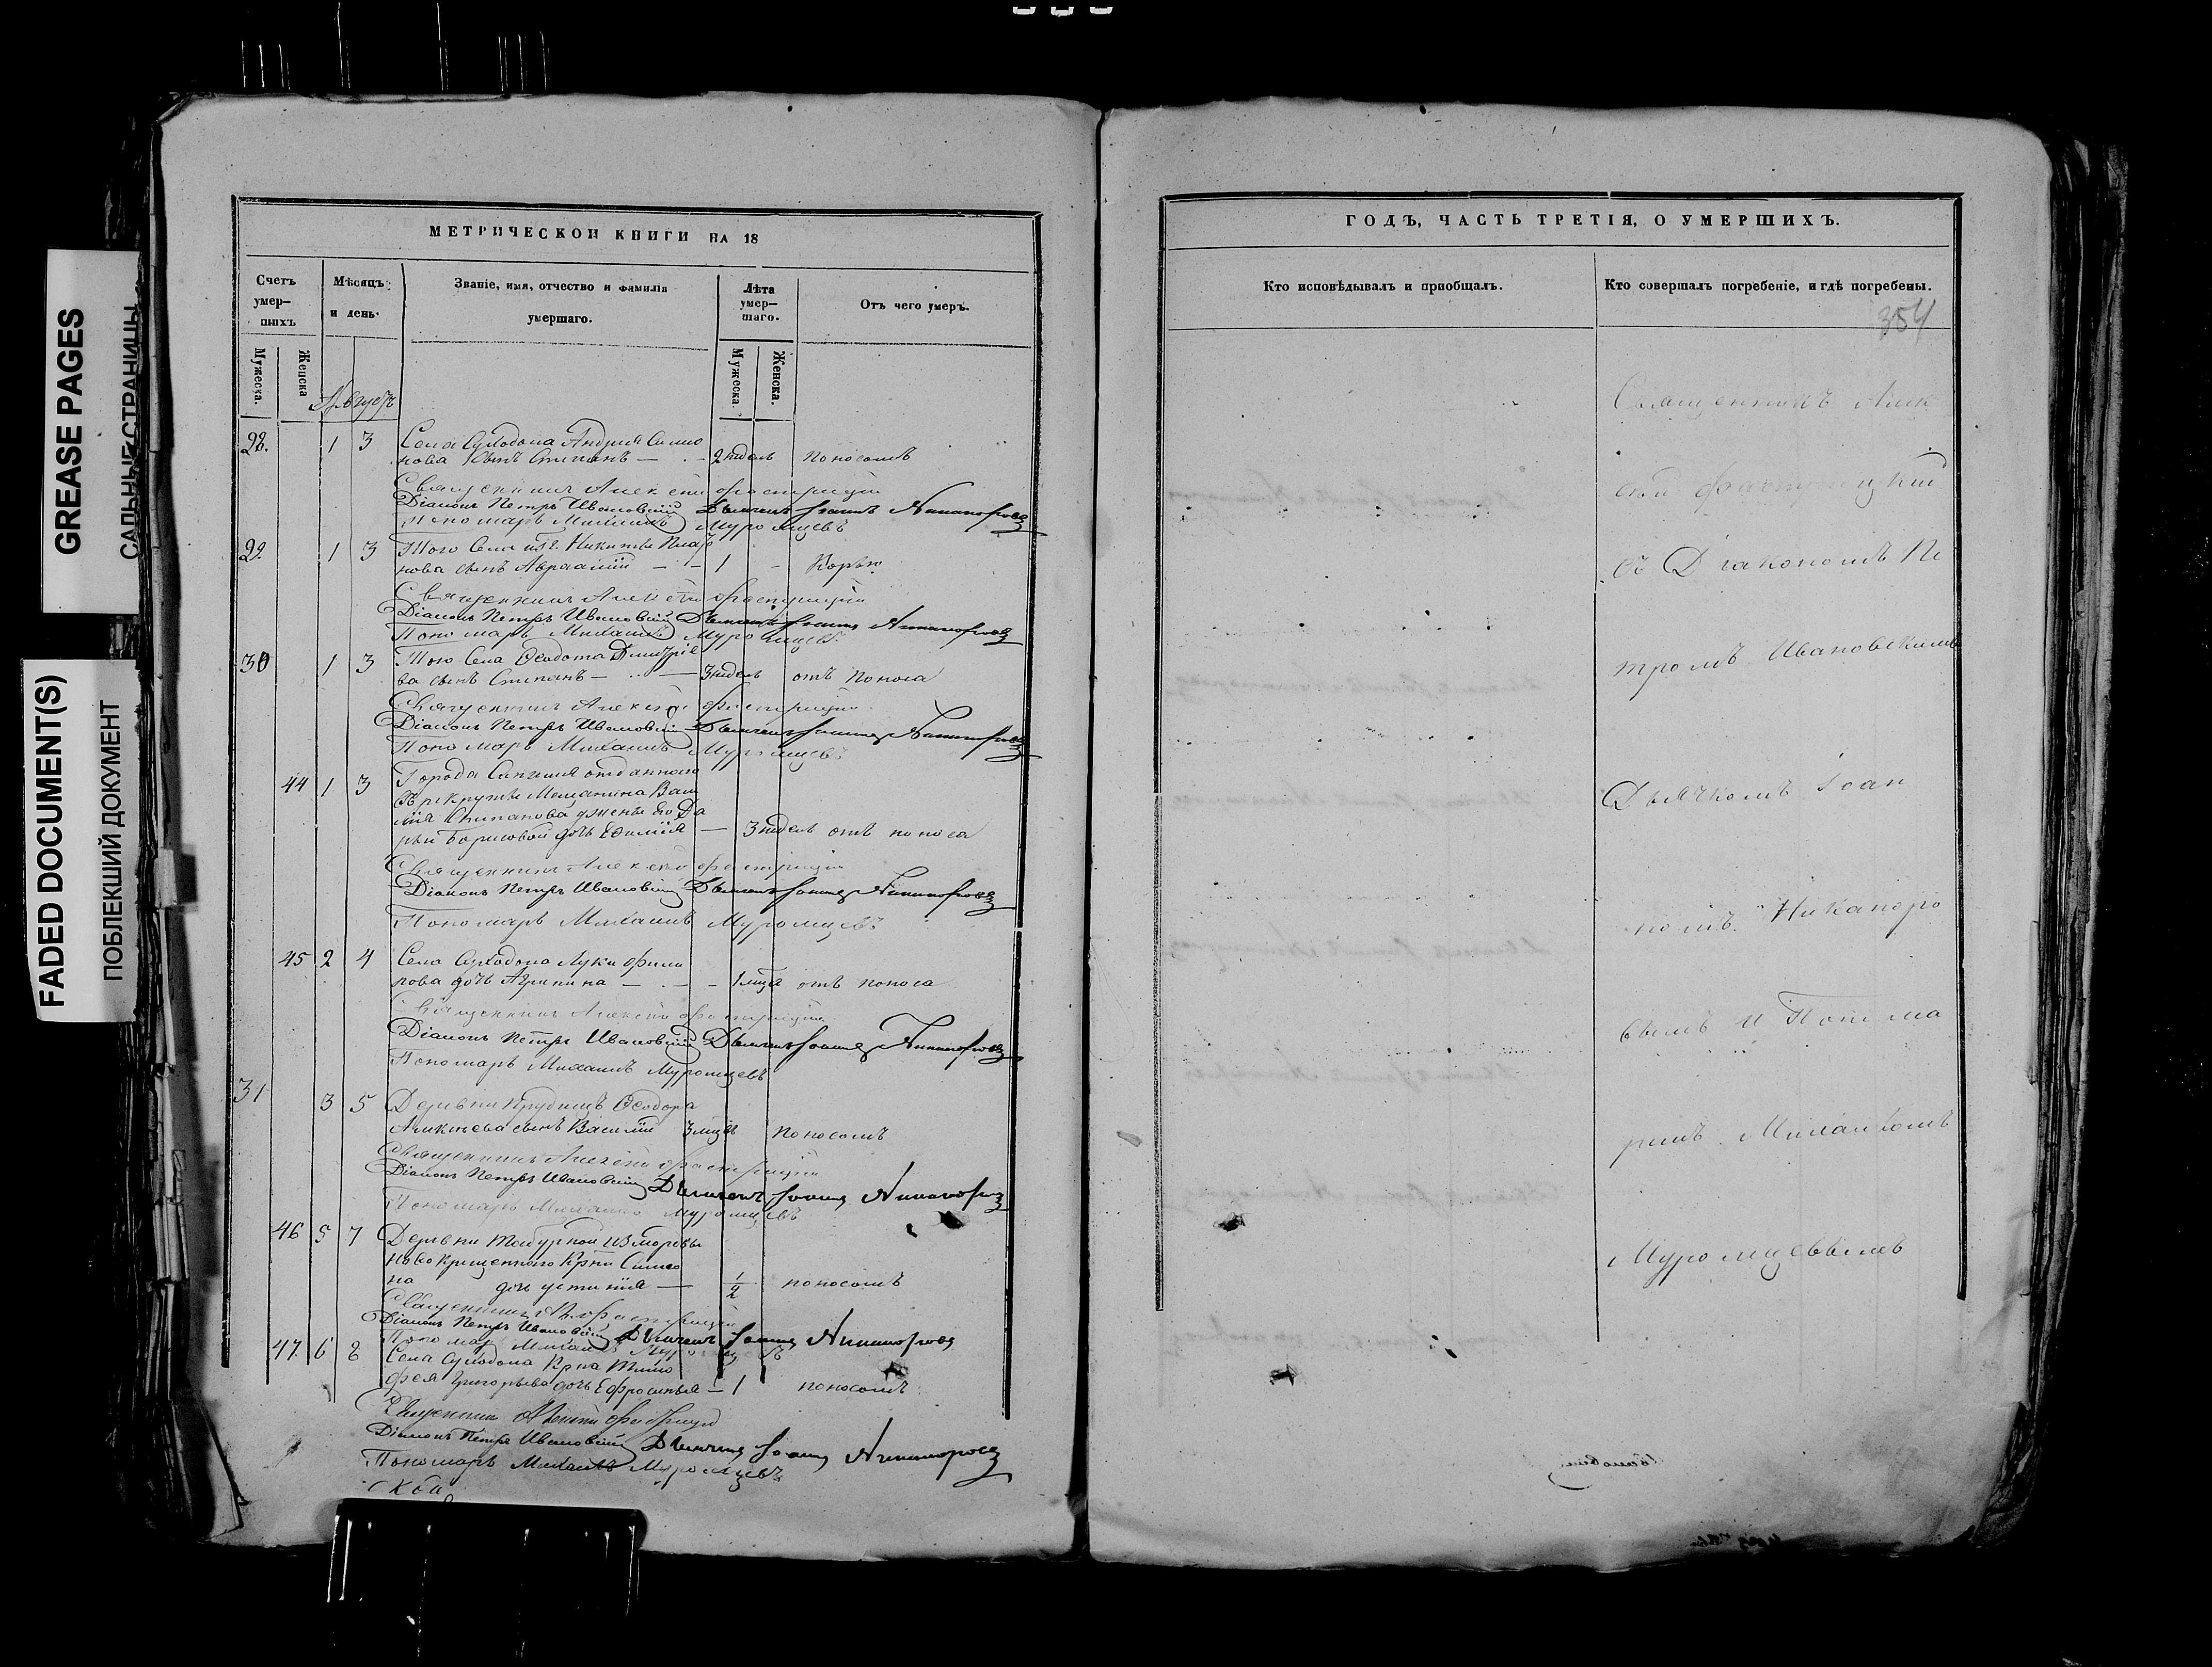 GREASE PAGES
САЛЬНЫЕ СТРАНИЦЫ
FADED DOCUMENT(S)
ПОБЛЕКШИЙ ДОКУМЕНТ
МЕТРИЧЕСКОЙ КНИГИ НА 18
Счетъ умер-шихъ
Мѣсяцъ и день.
Званіе, имя, отчество и фамилія умершаго.
Лѣта умер-шаго.
Отъ чего умеръ.
Мужеска.
Женска
Мужеска.
Женска.
Августъ
28. 1 3 Села Суходола Андрея Симо
нова сынъ Стипанъ — 2 недель поносомъ
Священникъ Алексей
Діаконъ Петръ Ивановскій Дьячекъ Іоаннъ Никаноровъ
Пономарь Михаилъ Муромцевъ
29. 1 3 Того Села Никиты
нова сынъ Авраамій — 1 Корью
Священникъ Алексей
Діаконъ Петръ Ивановскій Дьячекъ Іоаннъ Никаноровъ
Пономарь Михаилъ Муромцевъ
30 1 3 Того Села Ѳеодота Дмитріе
ва сынъ Стипанъ — 3 недель отъ поноса
Священникъ Алексей
Діаконъ Петръ Ивановскій Дьячекъ Іоаннъ Никаноровъ
Пономарь Михаилъ Муромцевъ
44 1 3 Города отданного
въ рекруты Мещанина Васи
лія Стипанова жены его Да
рьи Борисовой дочь — 3 недель отъ поноса
Священникъ Алексей
Діаконъ Петръ Ивановскій Дьячекъ Іоаннъ Никаноровъ
Пономарь Михаилъ Муромцевъ
45 2 4 Села Суходола Луки Фили
пова дочь Агрипина — 1 мца отъ поноса
Священникъ Алексей
Діаконъ Петръ Ивановскій Дьячекъ Іоаннъ Никаноровъ
Пономарь Михаилъ Муромцевъ
31 3 5 Деревни Ѳеодора
сынъ Василій 3 мцъ поносомъ
Священникъ Алексей
Діаконъ Петръ Ивановскій Дьячекъ Іоаннъ Никаноровъ
Пономарь Михаилъ Муромцевъ
46 5 7 Деревни
новокрещенного Симео
на дочь Устинія — 1/2 поносомъ
Священникъ
Діаконъ Петръ Ивановскій Дьячекъ Іоаннъ Никаноровъ
Пономарь Михаилъ Муромцевъ
47. 6 8 Села Суходола Кр-на Тимо
фея Григорьева дочь Ефросинья — 1 поносомъ
Священникъ Алексей
Діаконъ Петръ Ивановскій Дьячекъ Іоаннъ Никаноровъ
Пономарь Михаилъ Муромцевъ
ГОДЪ, ЧАСТЬ ТРЕТІЯ, О УМЕРШИХЪ.
Кто исповѣдывалъ и пріобщалъ.
Кто совершалъ погребеніе, и гдѣ погребены.
354
Священникъ Алек
сей
съ Діакономъ Пе
тромъ Ивановскимъ
Дьячкомъ Іоан
номъ Никаноро
вымъ и Понома
ремъ Михаиломъ
Муромцевымъ